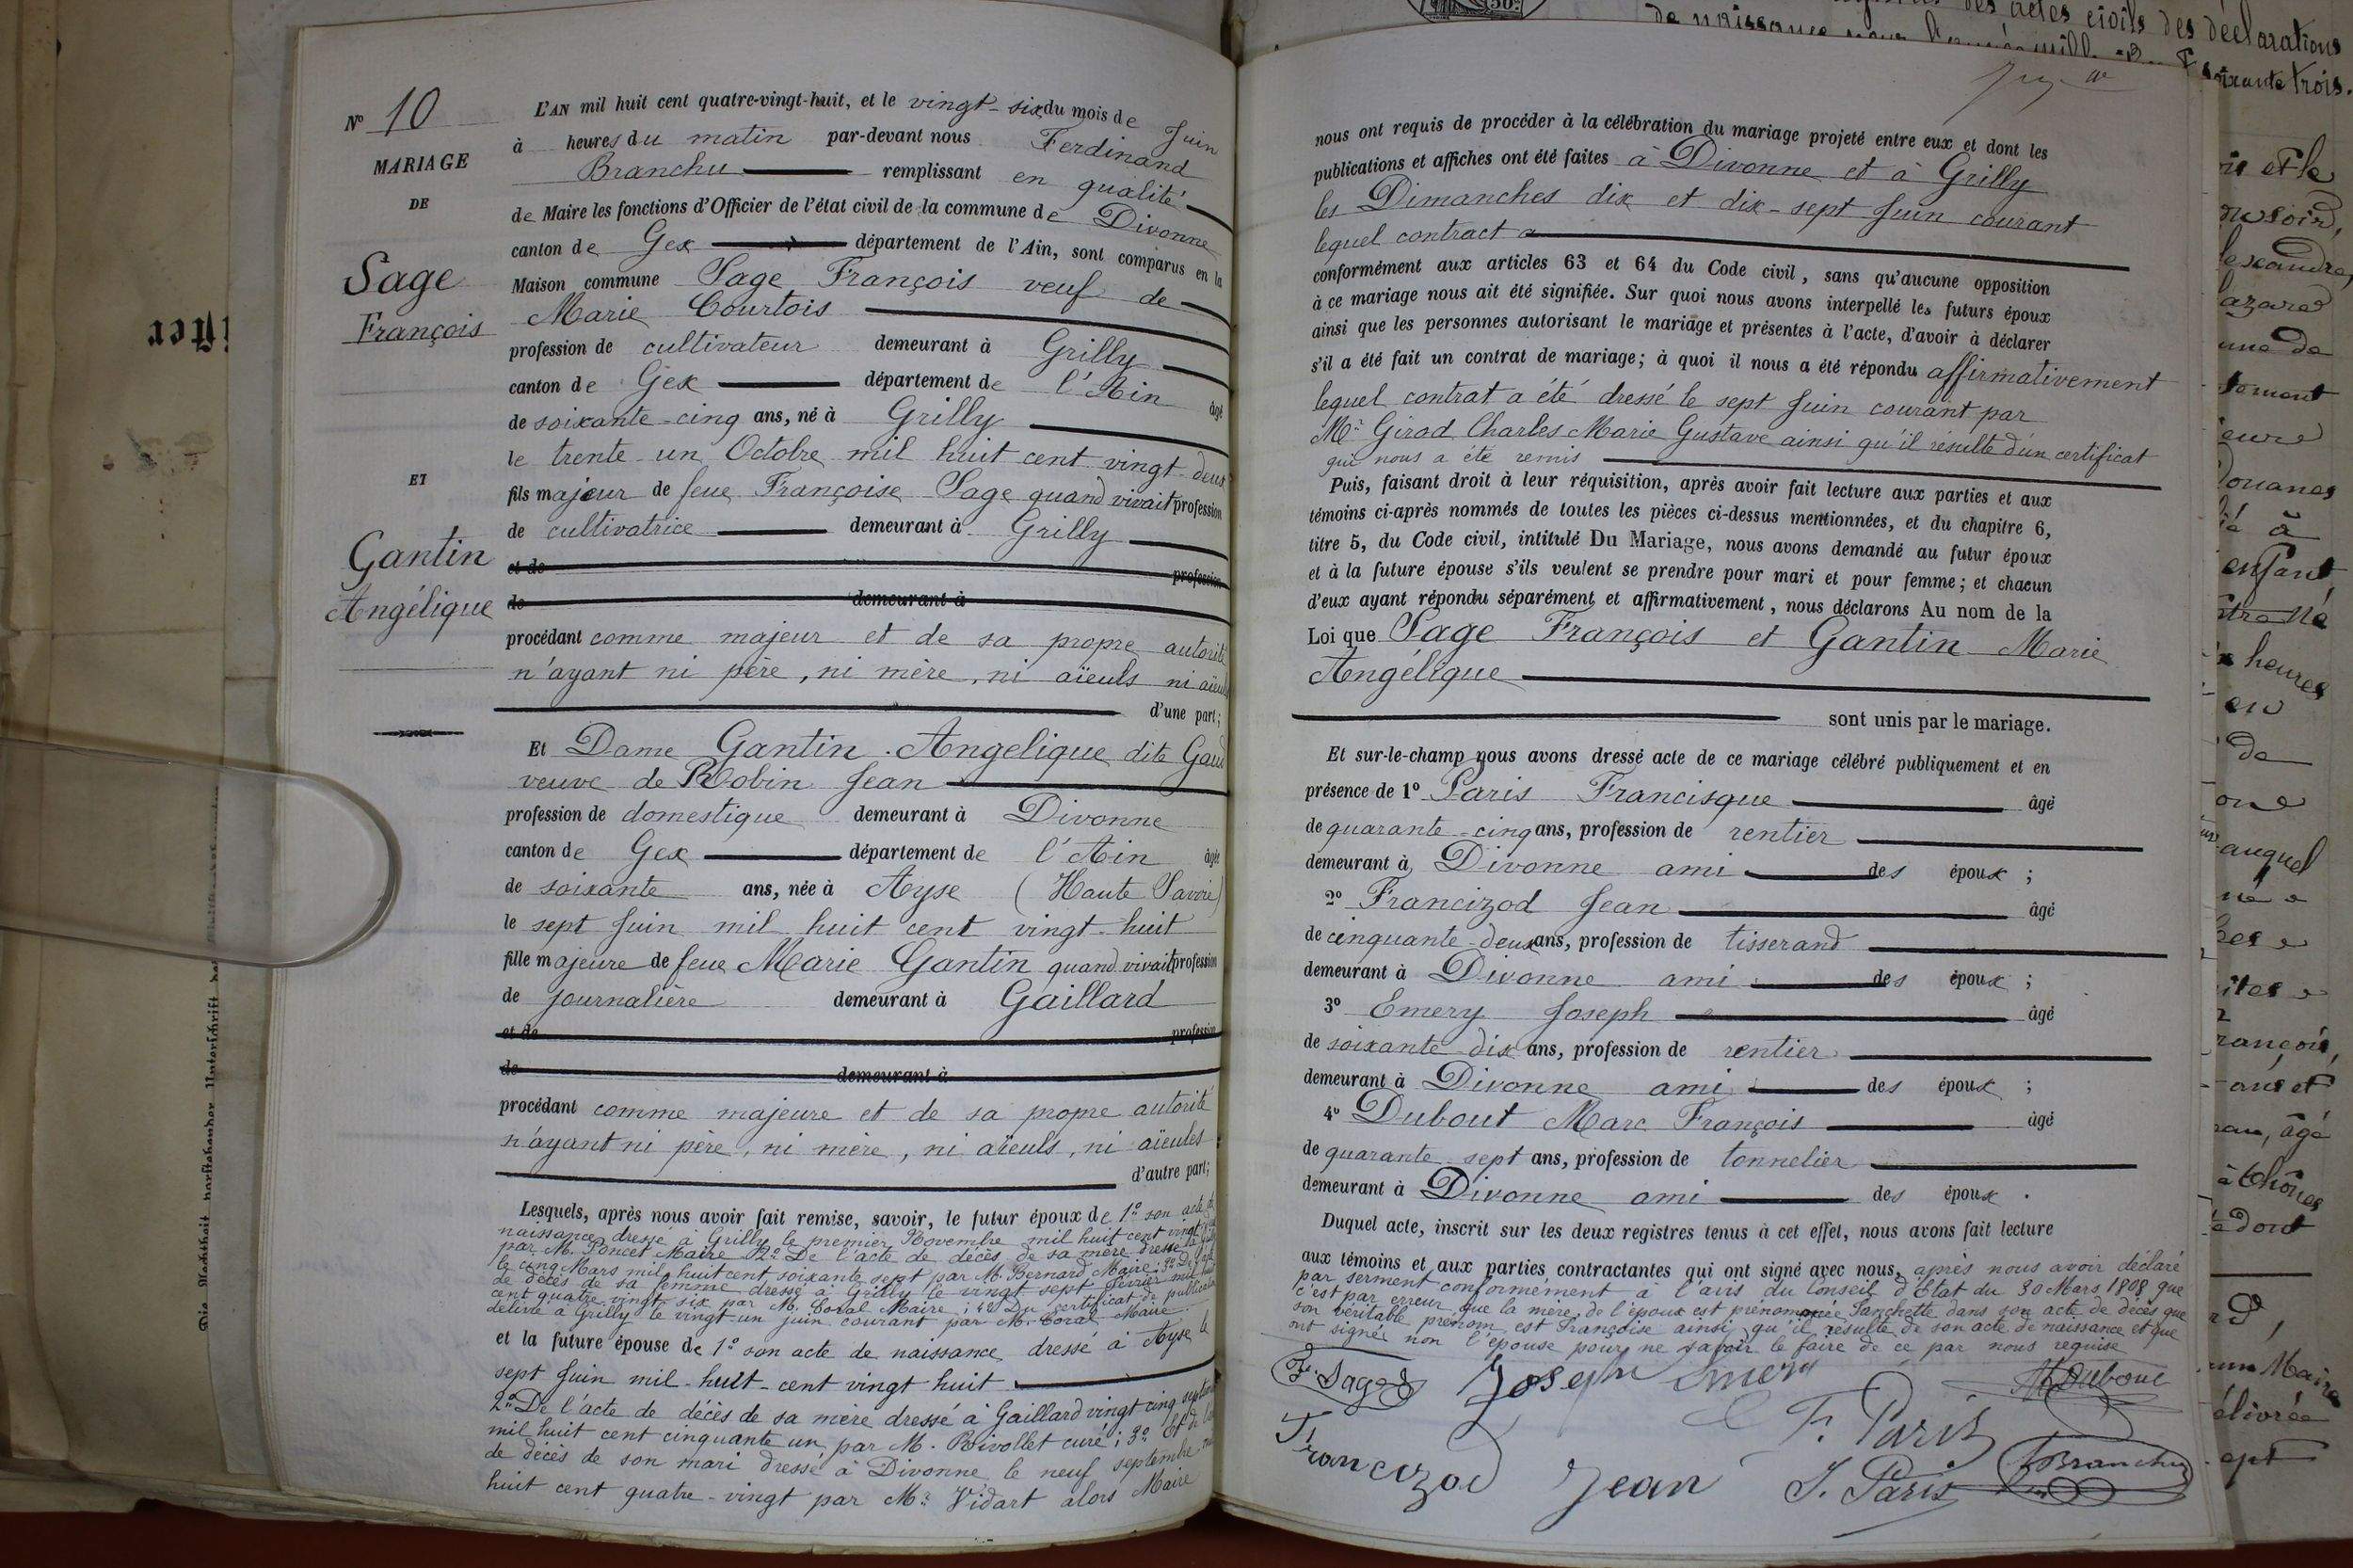 N° 10
MARIAGE
DE
Sage
François
ET
Gantin
Angélique
L'AN mil huit cent quatre-vingt-huit, et le vingt-six du mois de Juin
à heures du matin par-devant nous Ferdinand
Branchu remplissant en qualité
de Maire les fonctions d'Officier de l'état civil de la commune de Divonne
canton de Gex département de l'Ain, sont comparus en la
Maison commune Sage François veuf de
Marie Courtois
profession de cultivateur demeurant à Grilly
canton de Gex département de l'Ain âgé
de soixante-cinq ans, né à Grilly
le trente-un Octobre mil huit cent vingt-deux
fils majeur de feue Françoise Sage quand vivait profession
de cultivatrice demeurant à Grilly
et de profession
de demeurant à
procédant comme majeur et de sa propre autorité
n'ayant ni père, ni mère, ni aïeuls ni aïeules
d'une part;
Et Dame Gantin Angelique dite
veuve de Robin Jean
profession de domestique demeurant à Divonne
canton de Gex département de l'Ain âgée
de soixante ans, née à Ayse (Haute Savoie)
le sept Juin mil huit cent vingt-huit
fille majeure de feue Marie Gantin quand vivait profession
de journalière demeurant à Gaillard
et de profession
de demeurant à
procédant comme majeure et de sa propre autorité
n'ayant ni père, ni mère, ni aïeuls, ni aïeules
d'autre part;
Lesquels, après nous avoir fait remise, savoir, le futur époux de 1° son acte de
naissance dressé à Grilly le premier Novembre mil huit cent vingt
par M. Poncet Maire 2° De l'acte de décès de sa mère dressé à
le cinq Mars mil huit cent soixante sept par M. Bernard Maire; 3°
de décès de sa femme dressé à Grilly le vingt sept Février mil huit
cent quatre-vingt six par M. Coral Maire; 4° Du certificat de publication
délivré à Grilly le vingt-un juin courant par M. Coral Maire
et la future épouse de 1° son acte de naissance dressé à Ayse le
sept Juin mil-huit-cent vingt huit
2° De l'acte de décès de sa mère dressé à Gaillard vingt cinq septembre
mil huit cent cinquante un, par M. Rivollet curé; 3° Et de
de décès de son mari dressé à Divonne le neuf septembre mil
huit cent quatre-vingt par Mr Vidart alors Maire
nous ont requis de procéder à la célébration du mariage projeté entre eux et dont les
publications et affiches ont été faites à Divonne et à Grilly
les Dimanches dix et dix-sept Juin courant
lequel contract a
conformément aux articles 63 et 64 du Code civil, sans qu'aucune opposition
à ce mariage nous ait été signifiée. Sur quoi nous avons interpellé les futurs époux
ainsi que les personnes autorisant le mariage et présentes à l'acte, d'avoir à déclarer
s'il a été fait un contrat de mariage; à quoi il nous a été répondu affirmativement
lequel contrat a été dressé le sept Juin courant par
Mr Girod Charles Marie Gustave ainsi qu'il résulte d'un certificat
qui nous a été remis
Puis, faisant droit à leur réquisition, après avoir fait lecture aux parties et aux
témoins ci-après nommés de toutes les pièces ci-dessus mentionnées, et du chapitre 6,
titre 5, du Code civil, intitulé Du Mariage, nous avons demandé au futur époux
et à la future épouse s'ils veulent se prendre pour mari et pour femme; et chacun
d'eux ayant répondu séparément et affirmativement, nous déclarons Au nom de la
Loi que Sage François et Gantin Marie
Angélique
sont unis par le mariage.
Et sur-le-champ nous avons dressé acte de ce mariage célébré publiquement et en
présence de 1° Paris Francisque âgé
de quarante-cinq ans, profession de rentier
demeurant à Divonne ami des époux;
2° Francizod Jean âgé
de cinquante-deux ans, profession de tisserand
demeurant à Divonne ami des époux;
3° Emery Joseph âgé
de soixante-dix ans, profession de rentier
demeurant à Divonne ami des époux;
4° Dubout Marc François âgé
de quarante sept ans, profession de tonnelier
demeurant à Divonne ami des époux.
Duquel acte, inscrit sur les deux registres tenus à cet effet, nous avons fait lecture
aux témoins et aux parties contractantes qui ont signé avec nous, après nous avoir déclaré
par serment conformément à l'avis du Conseil d'Etat du 30 Mars 1808 que
c'est par erreur que la mère de l'époux est prénommée Fanchette dans son acte de décès que
son véritable prénom est Françoise ainsi qu'il résulte de son acte de naissance et que
ont signée non l'épouse pour ne savoir le faire de ce par nous requise
F. Sage Joseph Emery M Dubout
Francizod Jean F. Paris
J. Paris Branchu
des actes civils des déclarations
de naissance pour
soixante trois.